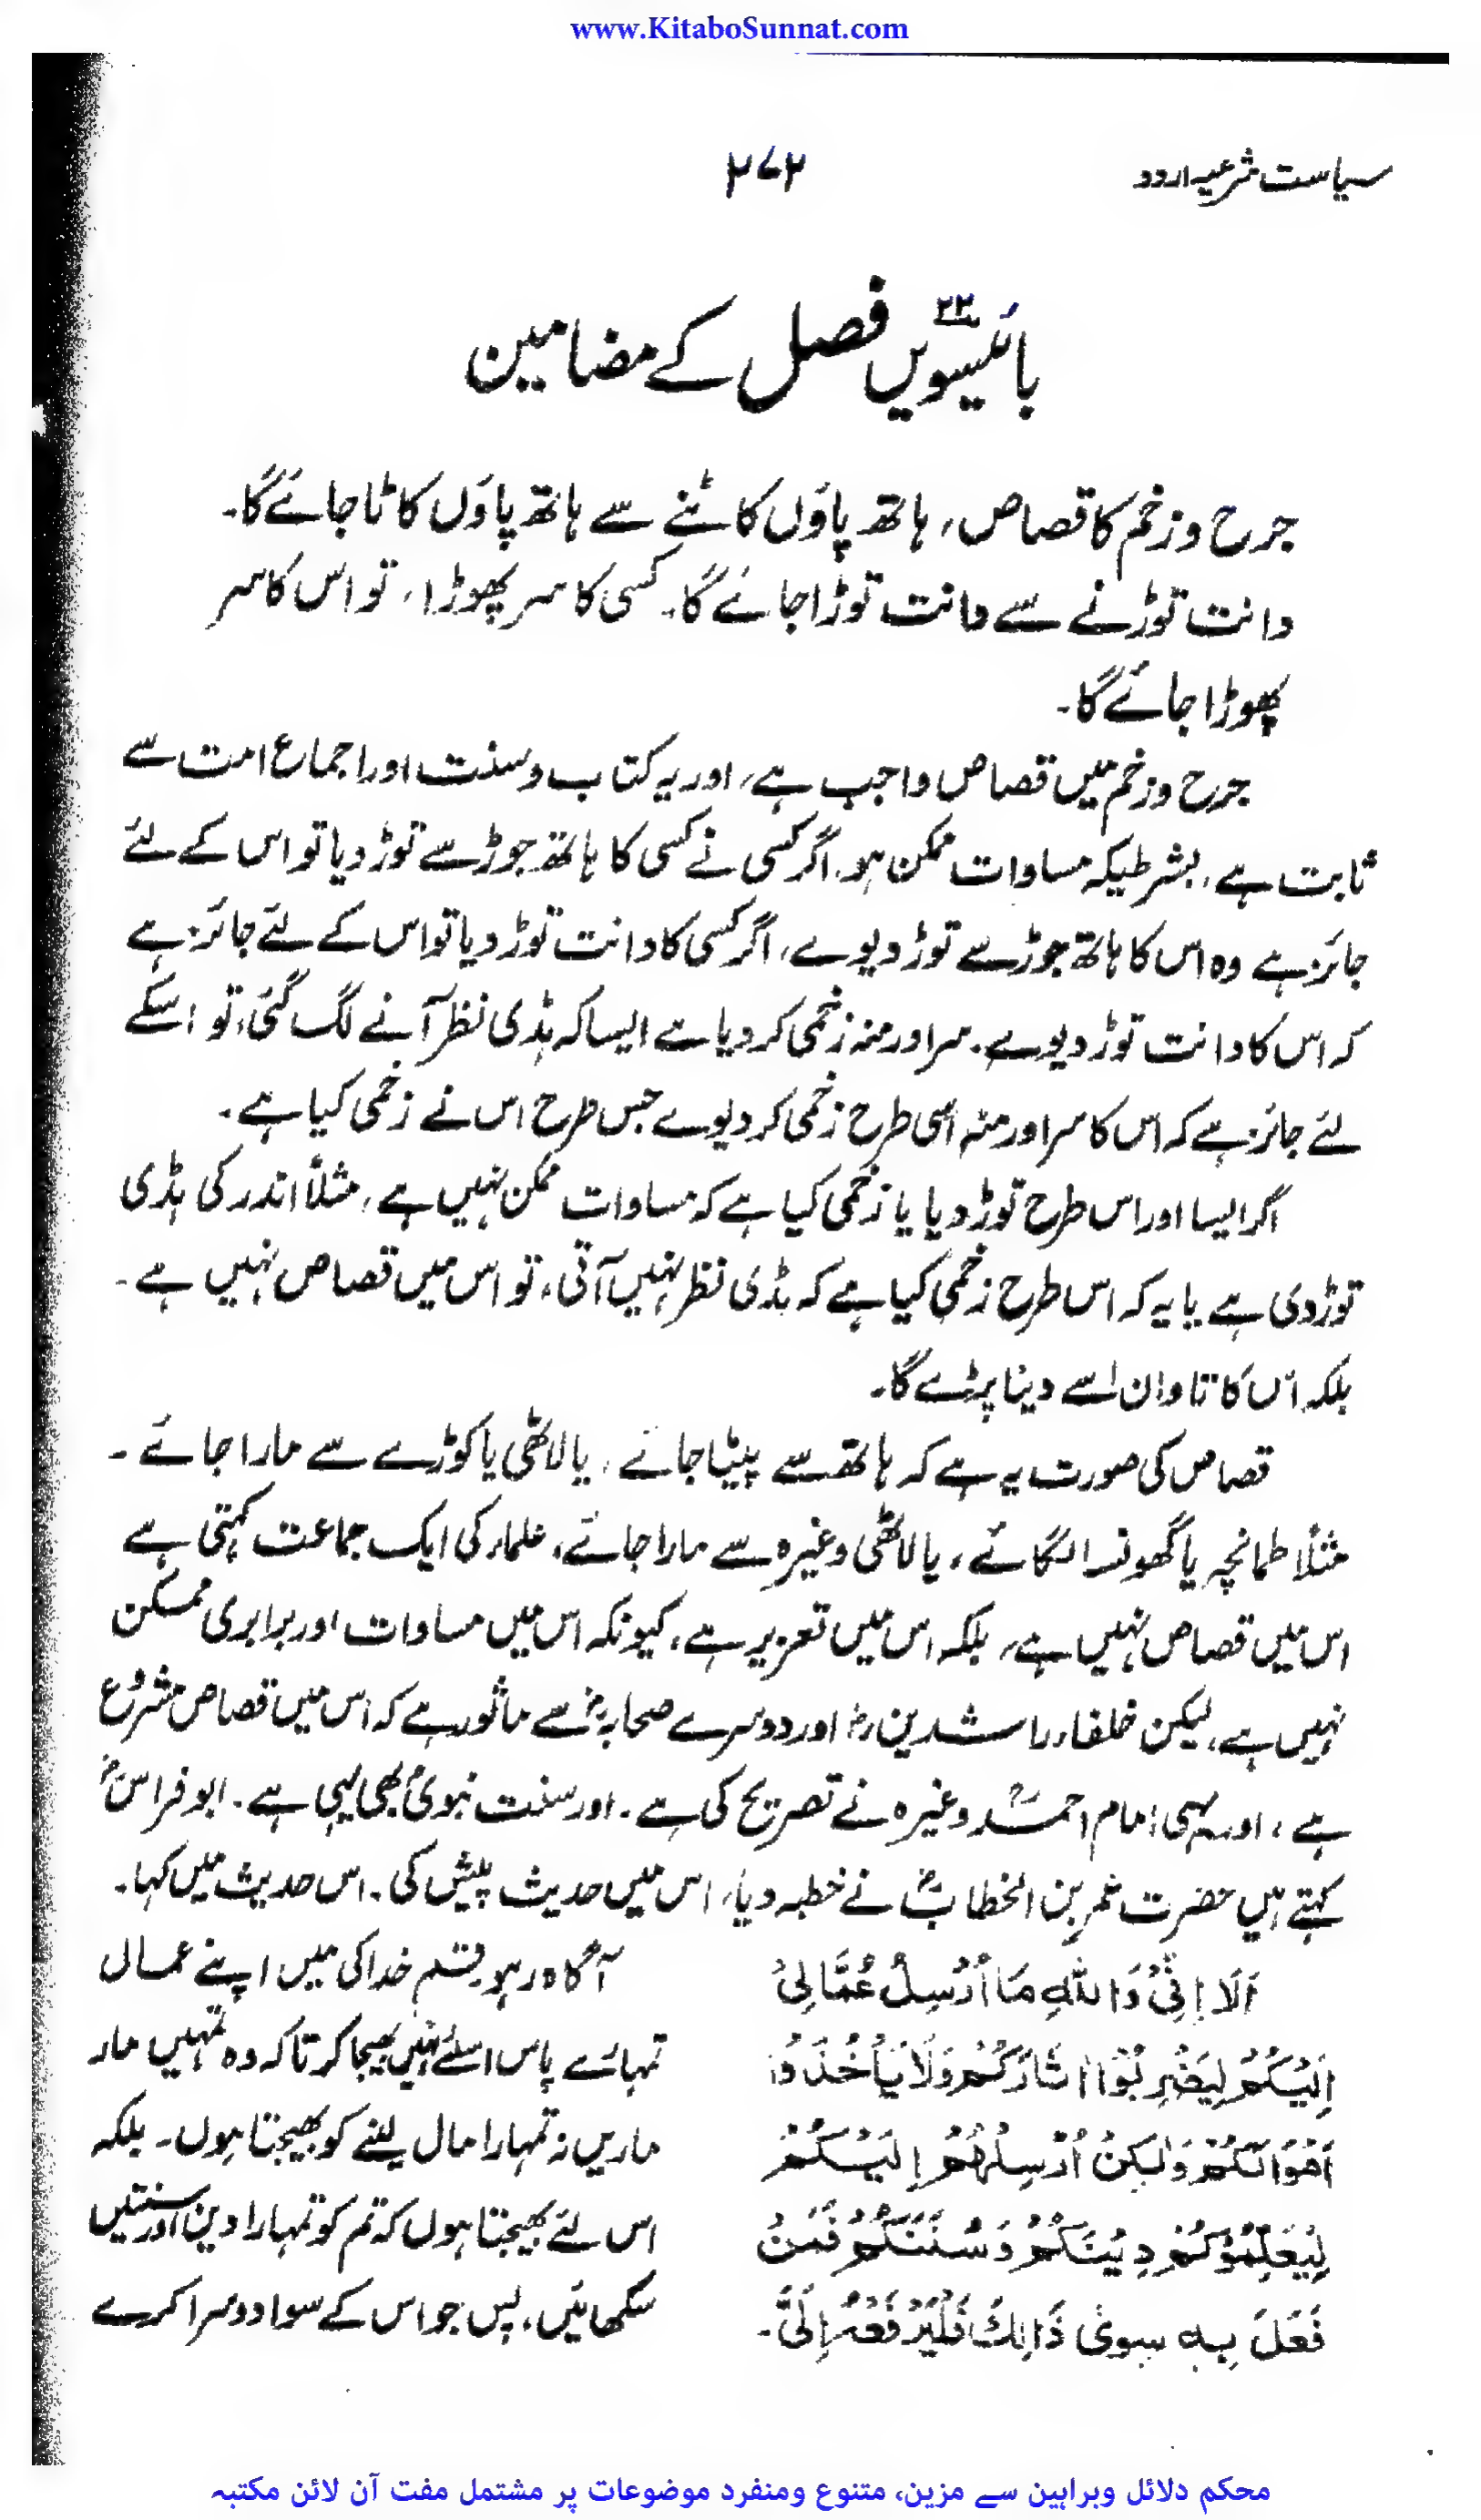 www.KitaboSunnat.com
سیاست شرعیہ اردو
۲۷۲
بائیسویں ۲۲ فصل کے مضامین
جرح و زخم کا قصاص، ہاتھ پاؤں کاٹنے سے ہاتھ پاؤں کاٹا جائے گا۔
دانت توڑنے سے دانت توڑا جائے گا۔ کسی کا سر پھوڑا، تو اس کا سر
پھوڑا جائے گا۔
جرح و زخم میں قصاص واجب ہے، اور یہ کتاب و سنت اور اجماع امت سے
ثابت ہے، بشرطیکہ مساوات ممکن ہو۔ اگر کسی نے کسی کا ہاتھ جوڑ سے توڑ دیا تو اس کے لئے
جائز ہے وہ اس کا ہاتھ جوڑ سے توڑ دیوے، اگر کسی کا دانت توڑ دیا تو اس کے لئے جائز ہے
کہ اس کا دانت توڑ دیوے۔ سر اور منہ زخمی کر دیا ہے ایسا کہ ہڈی نظر آنے لگ گئی، تو اسکے
لئے جائز ہے کہ اس کا سر اور منہ اسی طرح زخمی کر دیوے جس طرح اس نے زخمی کیا ہے۔
اگر ایسا اور اس طرح توڑ دیا یا زخمی کیا ہے کہ مساوات ممکن نہیں ہے، مثلاً اندر کی ہڈی
توڑ دی ہے یا یہ کہ اس طرح زخمی کیا ہے کہ ہڈی نظر نہیں آتی، تو اس میں قصاص نہیں ہے۔
بلکہ اس کا تاوان اسے دینا پڑے گا۔
قصاص کی صورت یہ ہے کہ ہاتھ سے پیٹا جائے، یا لاٹھی یا کوڑے سے مارا جائے۔
مثلاً طمانچہ یا گھونسا لگائے، یا لاٹھی وغیرہ سے مارا جائے، علماء کی ایک جماعت کہتی ہے
اس میں قصاص نہیں ہے، بلکہ اس میں تعزیر ہے، کیونکہ اس میں مساوات اور برابری ممکن
نہیں ہے، لیکن خلفاء راشدین رضؓ اور دوسرے صحابہؓ سے ماثور ہے کہ اس میں قصاص مشروع
ہے، اور یہی امام احمدؒ وغیرہ نے تصریح کی ہے۔ اور سنت نبویؐ بھی یہی ہے۔ ابو فراسؓ
کہتے ہیں حضرت عمر بن الخطابؓ نے خطبہ دیا، اس میں حدیث پیش کی۔ اس حدیث میں کہا۔
اَلَا اِنِّیْ وَاللّٰهِ مَا اُرْسِلُ عُمَّالِیْ
اِلَیْکُمْ لِیَضْرِبُوْا اَشَارَکُمْ وَلَا یَأْخُذُوْا
اَمْوَالَکُمْ وَلٰکِنْ اُرْسِلُهُمْ اِلَیْکُمْ
لِیُعَلِّمُوْکُمْ دِیْنَکُمْ وَسُنَنَکُمْ فَمَنْ
فَعَلَ بِهٖ سِوٰی ذٰالِكَ فَلْیَرْفَعْهُ اِلَیَّ۔
آگاہ رہو، قسم خدا کی میں اپنے عمال
تمہارے پاس اسلئے نہیں بھیجا کرتا کہ وہ تمہیں مار
ماریں نہ تمہارا مال لینے کو بھیجتا ہوں۔ بلکہ
اس لئے بھیجتا ہوں کہ تم کو تمہارا دین اور سنتیں
سکھائیں، پس جو اس کے سوا دوسرا کرے
محکم دلائل وبراہین سے مزین، متنوع ومنفرد موضوعات پر مشتمل مفت آن لائن مکتبہ